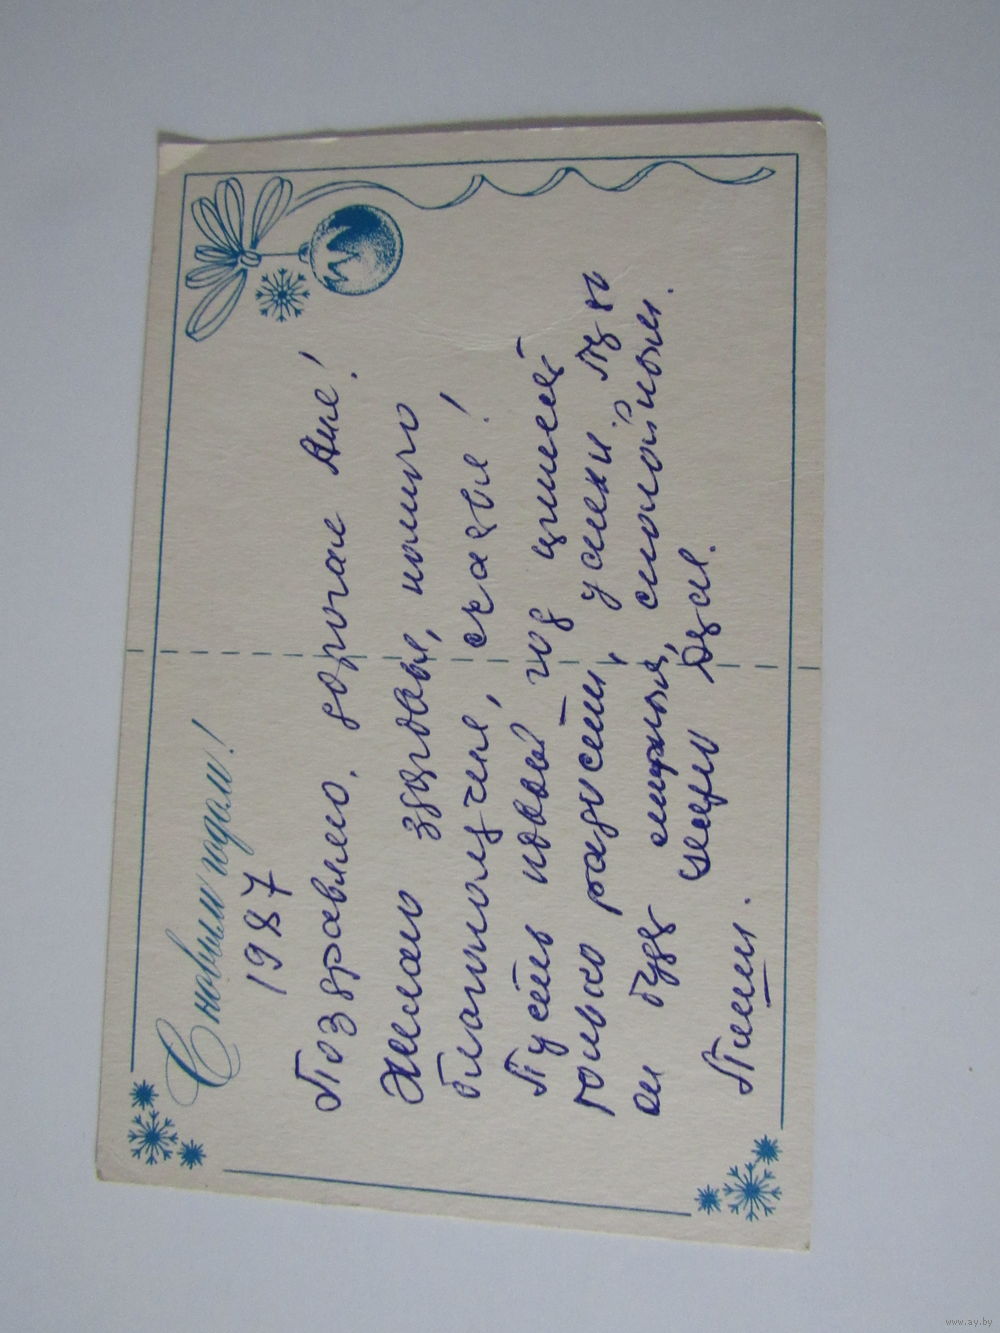 С новым годом!
1987
Поздравляю. дорогая Аня!
Желаю здоровья, полного
благополучия, счастья!
Пусть новый – год принесет
только радости, успехи. Пусть
он будет мирным, спокойным.
Целую
Пиши.
www.ay.by